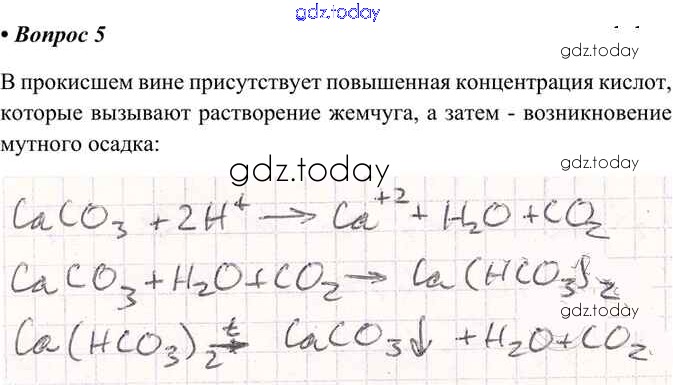 gdz.today
• Вопрос 5
gdz.today
В прокисшем вине присутствует повышенная концентрация кислот,
которые вызывают растворение жемчуга, а затем - возникновение
мутного осадка:
gdz.today
gdz.today
CaCO₃ + 2H⁺ → Ca⁺² + H₂O + CO₂
gdz.today
CaCO₃ + H₂O + CO₂ → Ca(HCO₃)₂
gdz.today
Ca(HCO₃)₂ →ᵗ CaCO₃↓ + H₂O + CO₂